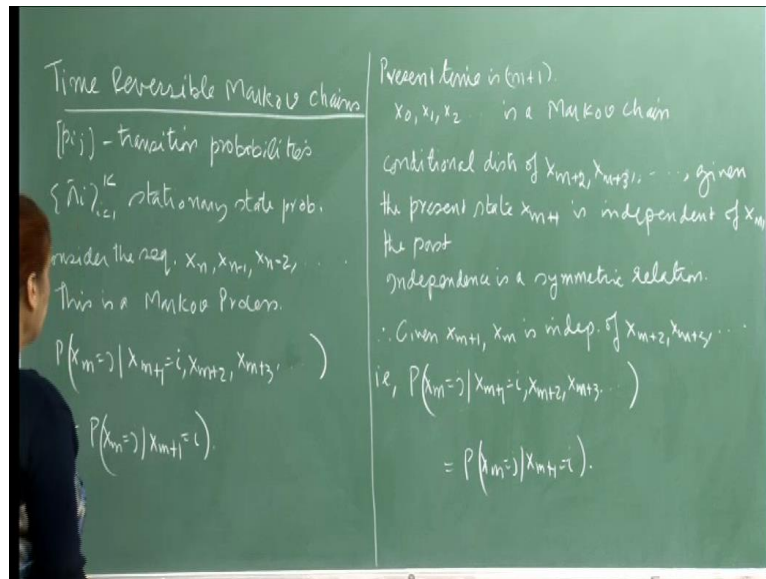 Time Reversible Markov Chains
[pij] - transition probabilities
{πi}ᵢ₌₁ᴷ stationary state prob.
onsider the seq. Xn, Xn-1, Xn-2, ....
This is a Markov Process.
P(Xm=j | Xm+1=i, Xm+2, Xm+3, ... )
= P(Xm=j | Xm+1=i).
Present time is (m+1).
X0, X1, X2 ... is a Markov chain
conditional distn of Xm+2, Xm+3, ..., given
the present state Xm+1 is independent of Xm,
the past
Independence is a symmetric relation.
∴ Given Xm+1, Xm is indep. of Xm+2, Xm+3, ...
ie, P(Xm=j | Xm+1=i, Xm+2, Xm+3 ... )
= P(Xm=j | Xm+1=i).